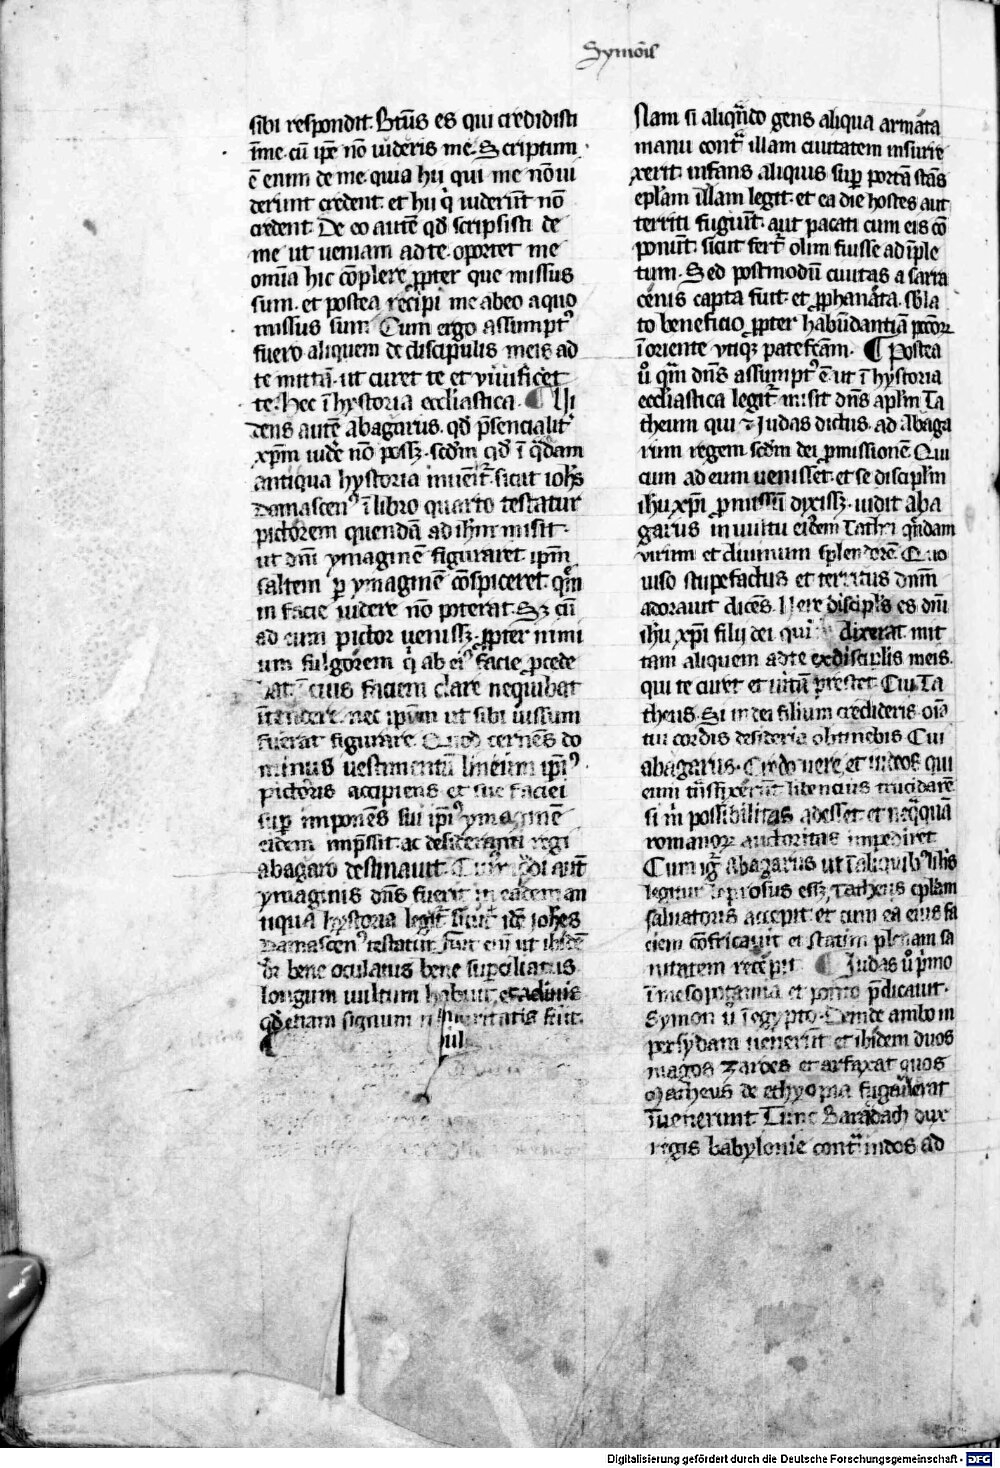 Symōis
sibi respondit. Btūs es qui credidisti
ī me. cū ip̄e nō uideris me. Scriptum
ē enim de me. quia hii qui me nō ui
derint credent. et hii q̄ uiderūt nō
credent. De eo autē qd̄ scripsisti de
me ut ueniam ad te. oportet me
omīa hic cōplere ꝓpter que missus
sum. et postea recipi me ab eo a quo
missus sum. Cum ergo assumptꝰ
fuero aliquem de discipulis meis ad
te mittā. ut curet te et uiuificet
te. Hec ī hystoria eccliastica. ¶ Vi
dens autē abagarus. qd̄ p̄sencialit̄
xp̄m uidē nō possꝫ. scd̄m qd̄ ī q̄dam
antiqua hystoria inuenit̄. sicut ioh̄s
Damascenꝰ ī libro quarto testatur
pictorem quendā ad ih̄m misit.
ut dn̄i ymaginē figuraret. ip̄m
saltem ꝑ ymaginē cōspiceret. quē
in facie uidere nō poterat. Sꝫ cū
ad eum pictor uenissꝫ. ꝓpter nimi
um fulgorem q̄ ab eiꝰ facie ꝓcede
bat. ī eius faciem clare nequibat
ītendere. nec ip̄um ut sibi iussum
fuerat figurare. Quod cernēs do
minus uestimentū lineum ip̄iꝰ
pictoris accipiens et sue faciei
suꝑ imponēs sui ip̄iꝰ ymaginē
eidem imp̄ssit. ac desideranti regi
abagaro destinauit. Cuiꝰ
ymaginis dn̄s fuerit in eadem an
tiqua hystoria legit̄. sicut idē ioh̄es
Damascenꝰ testatur. Fuit enī ut ibidē
dr̄ bene oculatus bene suꝑciliatus
longum uultum habuit, et adinis
qd̄ etiam signum maturitatis fuit.
iul
Nam si aliqn̄do gens aliqua armata
manu contᵃ illam ciuitatem insurre
xerit. infans aliquis suꝑ portā stās
epl̄am illam legit. et ea die hostes aut
territi fugiūt. aut pacati cum eis cō
ponūt. sicut fert̄ olim fuisse adīple
tum. Sed postmodū ciuitas a sarra
cenis capta fuit. et ꝓphanata. sb̄la
to beneficio ꝓpter habūdantiā pccōꝝ
ī oriente utiqꝫ patefcām. ¶ Postea
ū qm̄ dn̄s assumptꝰ ē. ut ī hystoria
eccliastica legit̄. misit dn̄s apl̄m Ta
theum qui ⁊ iudas dictus. ad abaga
rum regem scd̄m dei ꝓmissionē. Qui
cum ad eum uenisset. et se discipl̄m
ih̄u xp̄i ꝓmissū dixissꝫ. uidit aba
garus in uultu eiꝰdem Tathei qn̄dam
mirum et diuinum splendorē. Quo
uiso stupefactus et territus dn̄m
adorauit dicēs. Uere discipl̄s es dn̄i
ih̄u xp̄i filii dei qui dixerat mit
tam aliquem ad te ex discipulis meis.
qui te curet et uitā prestet. Cui Ta
theus. Si in dei filium credideris. oīa
tui cordis desideria obtinebis. Cui
abagarus. Credo uere, et iudeos qui
eum crucifixerūt libencius trucidarē
si m̄ possibilitas adesset. et neq̄quā
romanoꝝ auctoritas impediret
Cum igit̄ abagarus ut ī aliquibꝰ libris
legitur leprosus essꝫ, Tatheus epl̄am
saluatoris accepit. et cum ea eius fa
ciem cōfricauit et statim plenam sa
nitatem recepit. ¶ Judas ū p̄mo
ī mesopotamia et ponto p̄dicauit.
Symon ū ī egypto. Deinde ambo in
persydam uenerūt et ibidem duos
magos Zaroes et arfaxat quos
Matheus de ethyopia fugauerat
īuenerunt. Tunc Baradach dux
regis babylonie contᵃ indos ad
Digitalisierung gefördert durch die Deutsche Forschungsgemeinschaft - DFG